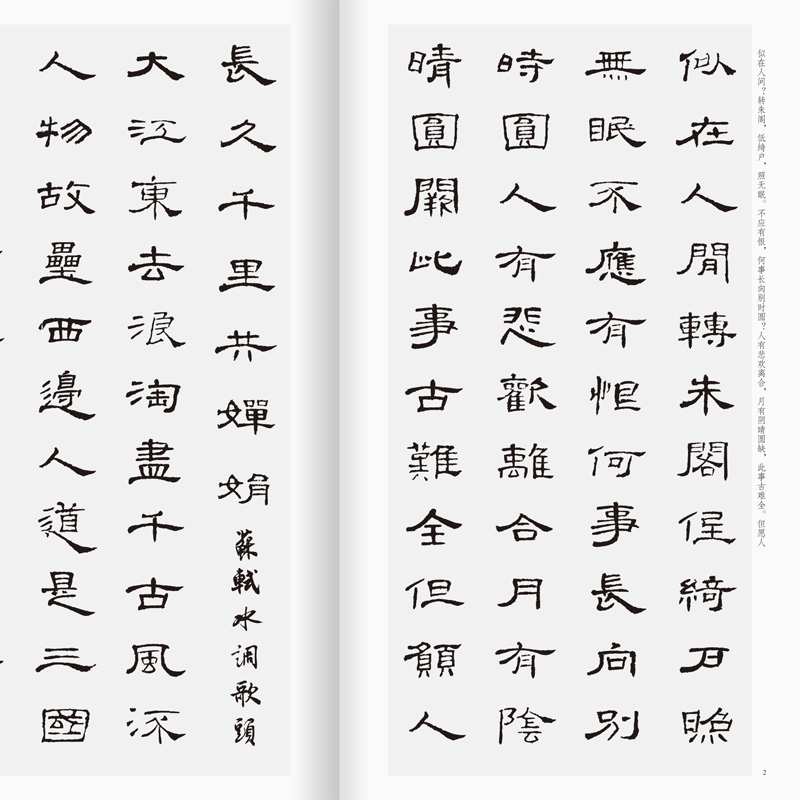 似在人间？转朱阁，低绮户，照无眠。不应有恨，何事长向别时圆？人有悲欢离合，月有阴晴圆缺，此事古难全。但愿人
似在人間轉朱閣低綺户照
無眠不應有恨何事長向别
時圓人有悲歡離合月有陰
晴圓闕此事古難全但願人
2
長久千里共嬋娟
蘇軾水調歌頭
大江東去浪淘盡千古風流
人物故壘西邊人道是三國